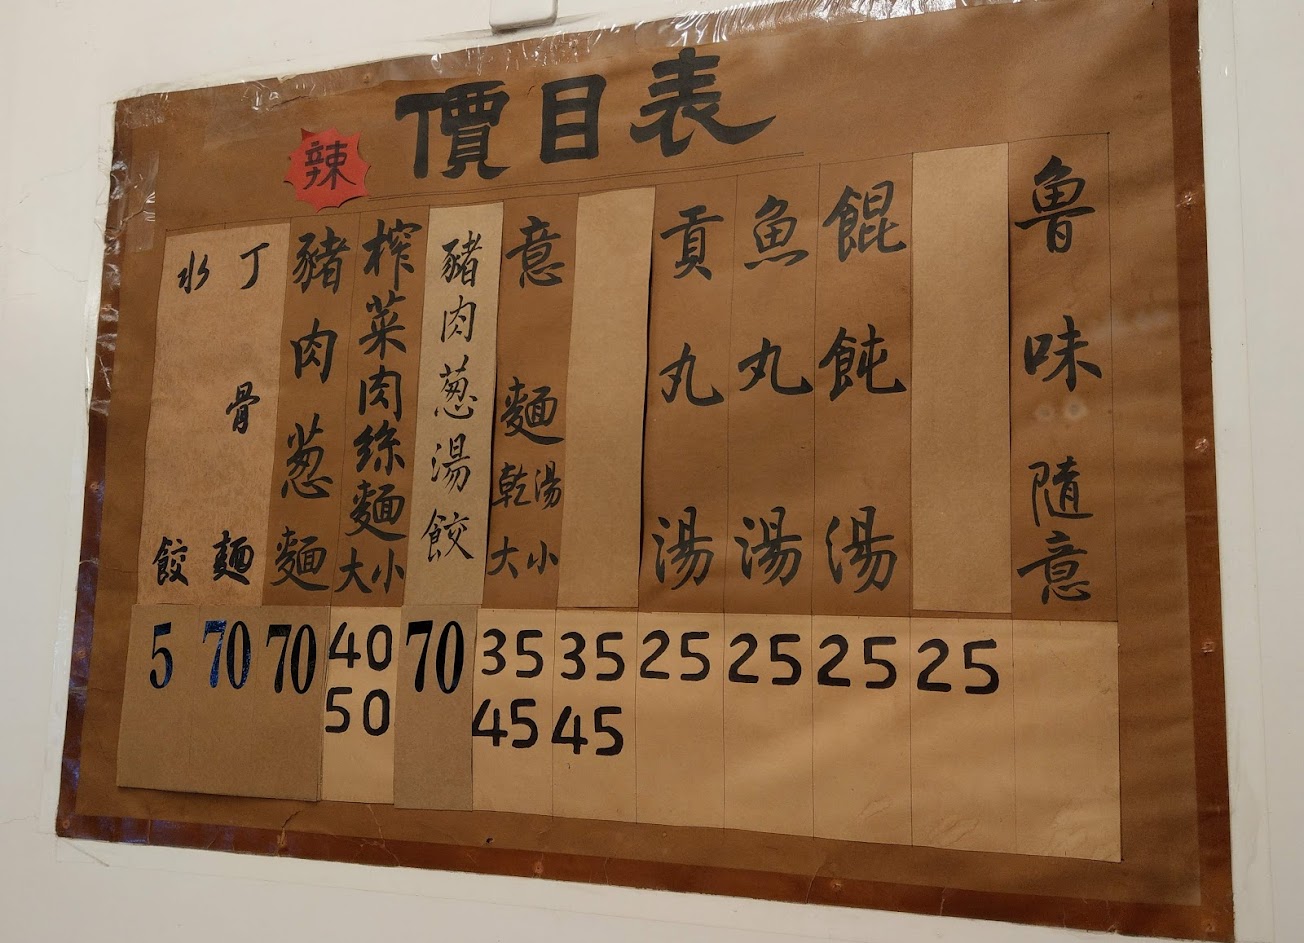 價目表
辣
魯味隨意
餛飩湯
魚丸湯
貢丸湯
意麵
乾湯
大小
豬肉葱湯餃
榨菜肉絲麵
大小
豬肉葱麵
丁骨麵
水餃
5 70 70 40 70 35 35 25 25 25 25
50 45 45